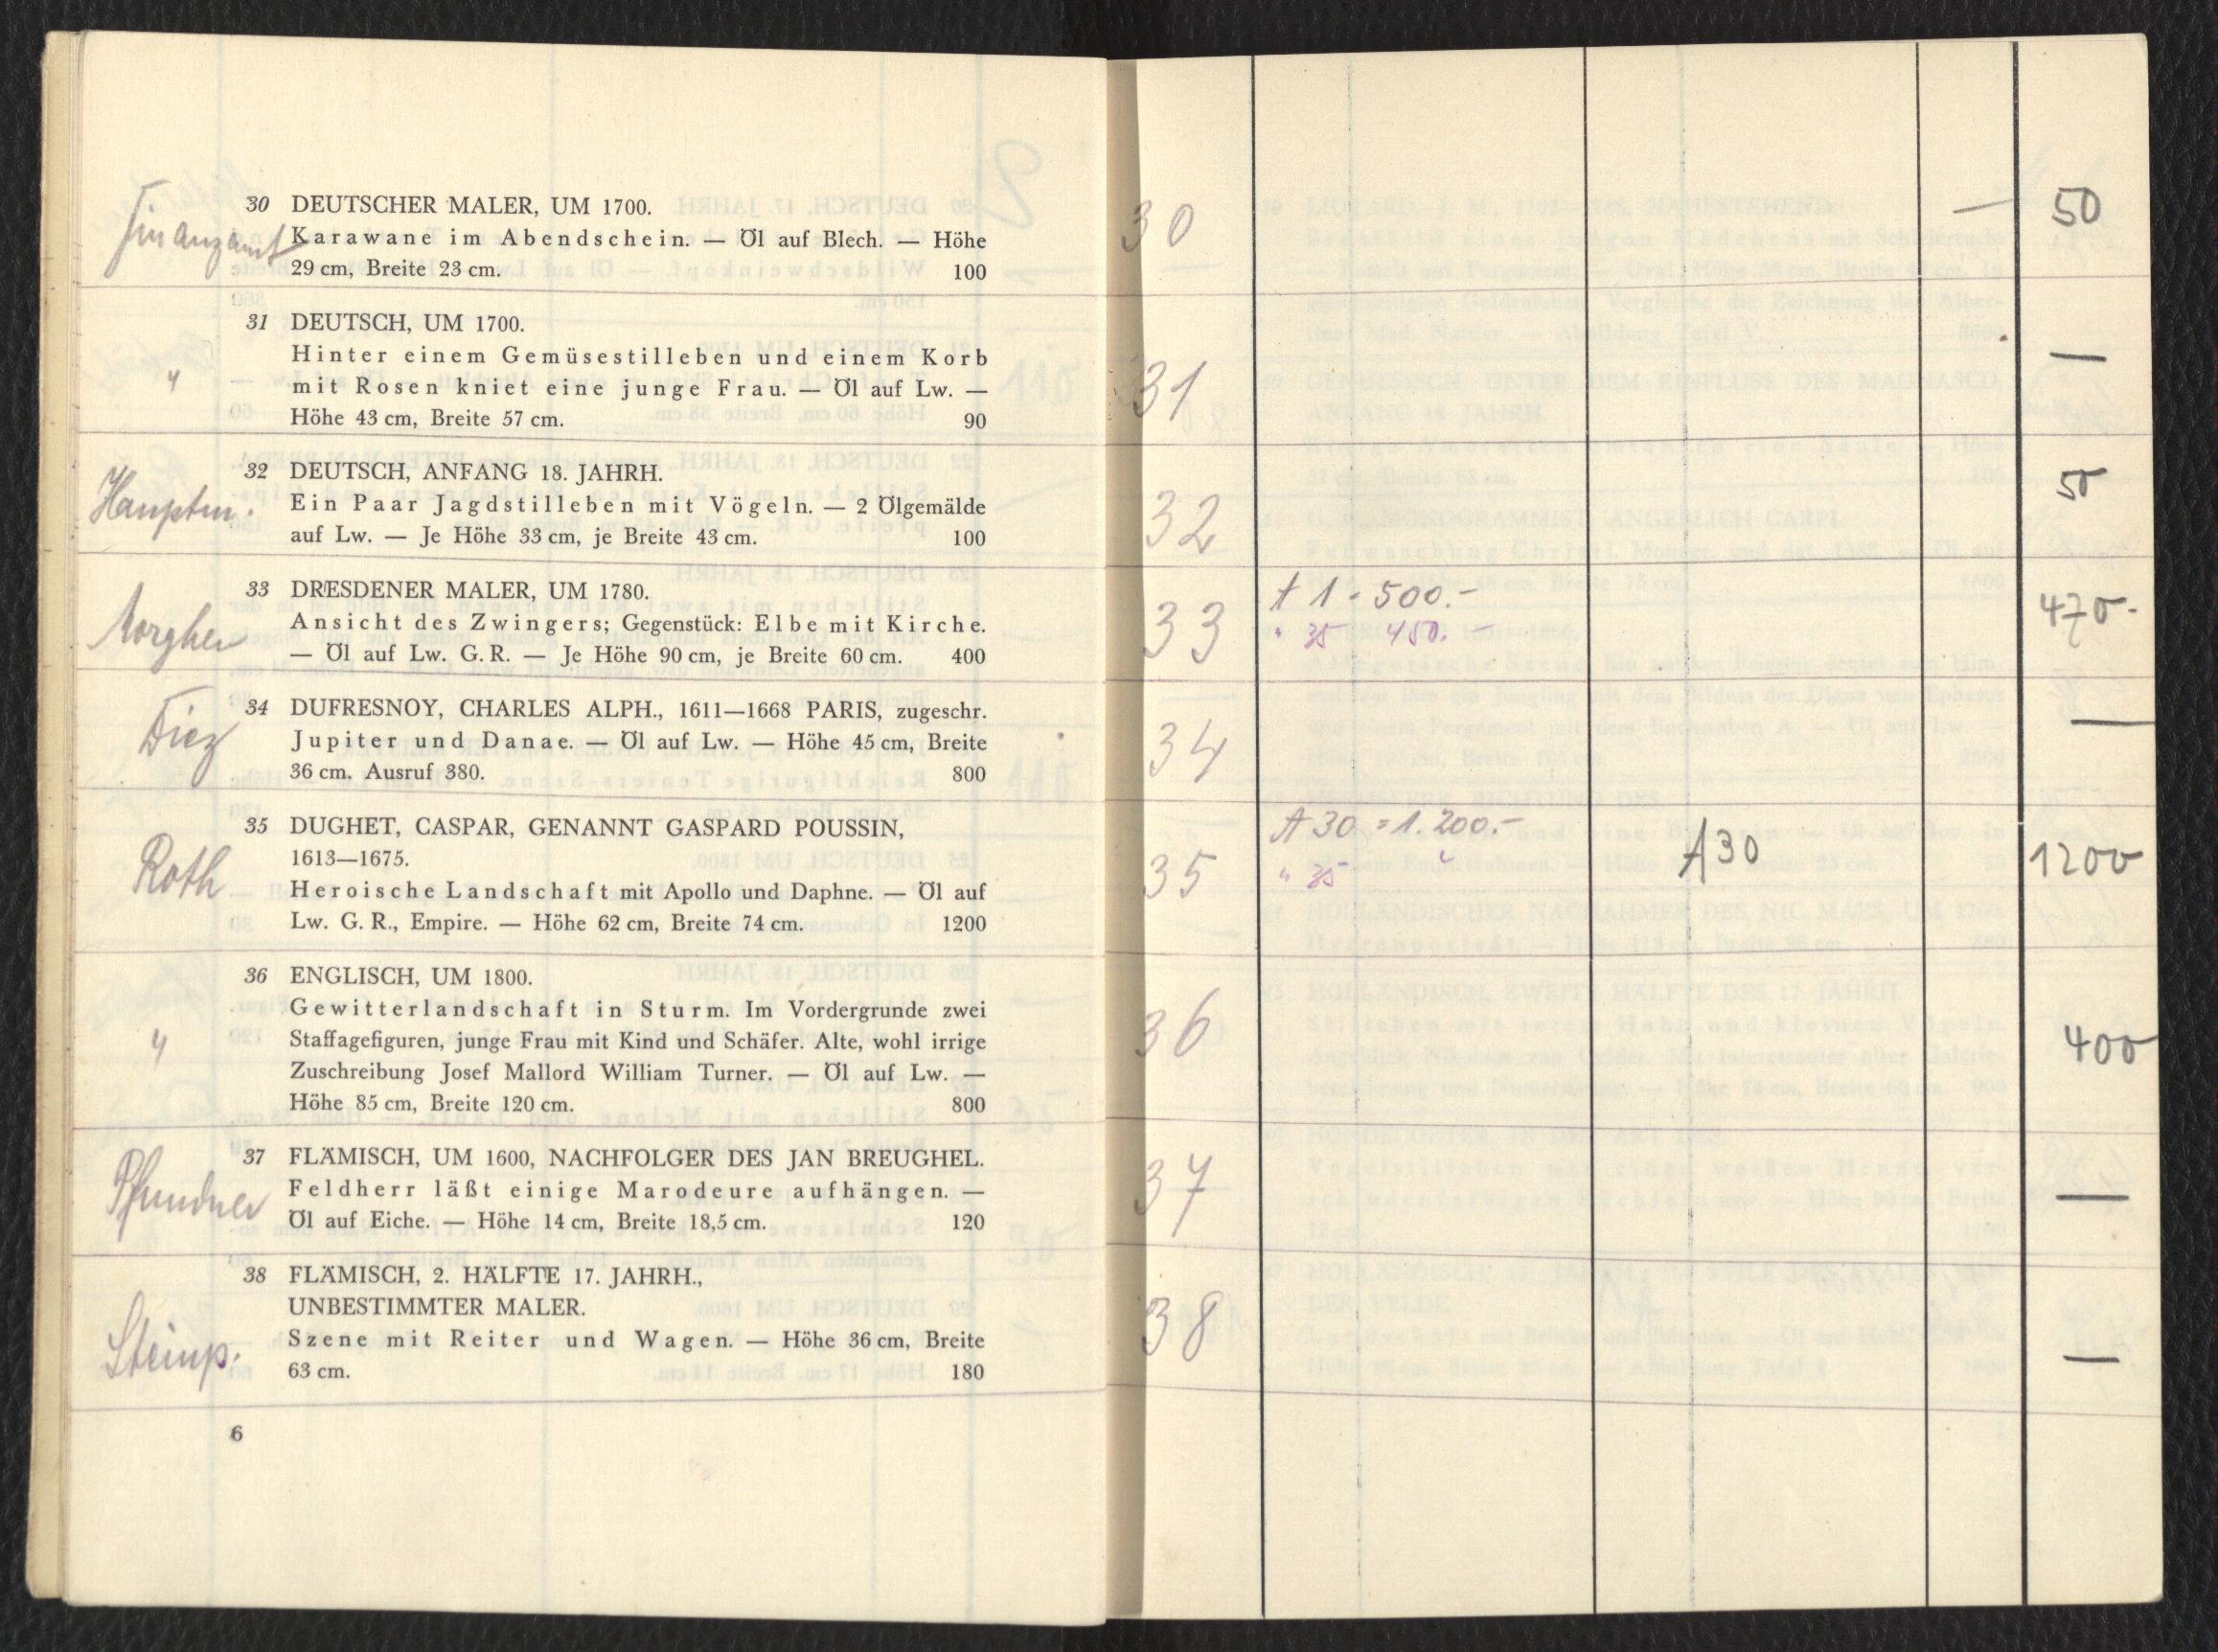 Finanzamt
30 DEUTSCHER MALER, UM 1700.
Karawane im Abendschein. — Öl auf Blech. — Höhe
29 cm, Breite 23 cm. 100
31 DEUTSCH, UM 1700.
Hinter einem Gemüsestilleben und einem Korb
" mit Rosen kniet eine junge Frau. — Öl auf Lw. —
Höhe 43 cm, Breite 57 cm. 90
32 DEUTSCH, ANFANG 18. JAHRH.
Hauptm. Ein Paar Jagdstilleben mit Vögeln. — 2 Ölgemälde
auf Lw. — Je Höhe 33 cm, je Breite 43 cm. 100
33 DRESDENER MALER, UM 1780.
Ansicht des Zwingers; Gegenstück: Elbe mit Kirche.
— Öl auf Lw. G. R. — Je Höhe 90 cm, je Breite 60 cm. 400
34 DUFRESNOY, CHARLES ALPH., 1611—1668 PARIS, zugeschr.
Jupiter und Danae. — Öl auf Lw. — Höhe 45 cm, Breite
36 cm. Ausruf 380. 800
35 DUGHET, CASPAR, GENANNT GASPARD POUSSIN,
1613—1675.
Roth Heroische Landschaft mit Apollo und Daphne. — Öl auf
Lw. G. R., Empire. — Höhe 62 cm, Breite 74 cm. 1200
36 ENGLISCH, UM 1800.
Gewitterlandschaft in Sturm. Im Vordergrunde zwei
" Staffagefiguren, junge Frau mit Kind und Schäfer. Alte, wohl irrige
Zuschreibung Josef Mallord William Turner. — Öl auf Lw. —
Höhe 85 cm, Breite 120 cm. 800
37 FLÄMISCH, UM 1600, NACHFOLGER DES JAN BREUGHEL.
Pfundner Feldherr läßt einige Marodeure aufhängen. —
Öl auf Eiche. — Höhe 14 cm, Breite 18,5 cm. 120
38 FLÄMISCH, 2. HÄLFTE 17. JAHRH.,
UNBESTIMMTER MALER.
Steinp. Szene mit Reiter und Wagen. — Höhe 36 cm, Breite
63 cm. 180
6
30 — 50
31 —
32 50
33 A 1 = 500.— 470.-
" 35 450.—
34 —
35 A 30 = 1.200.— A 30 1200
" 35 "
36 400
37 —
38 —